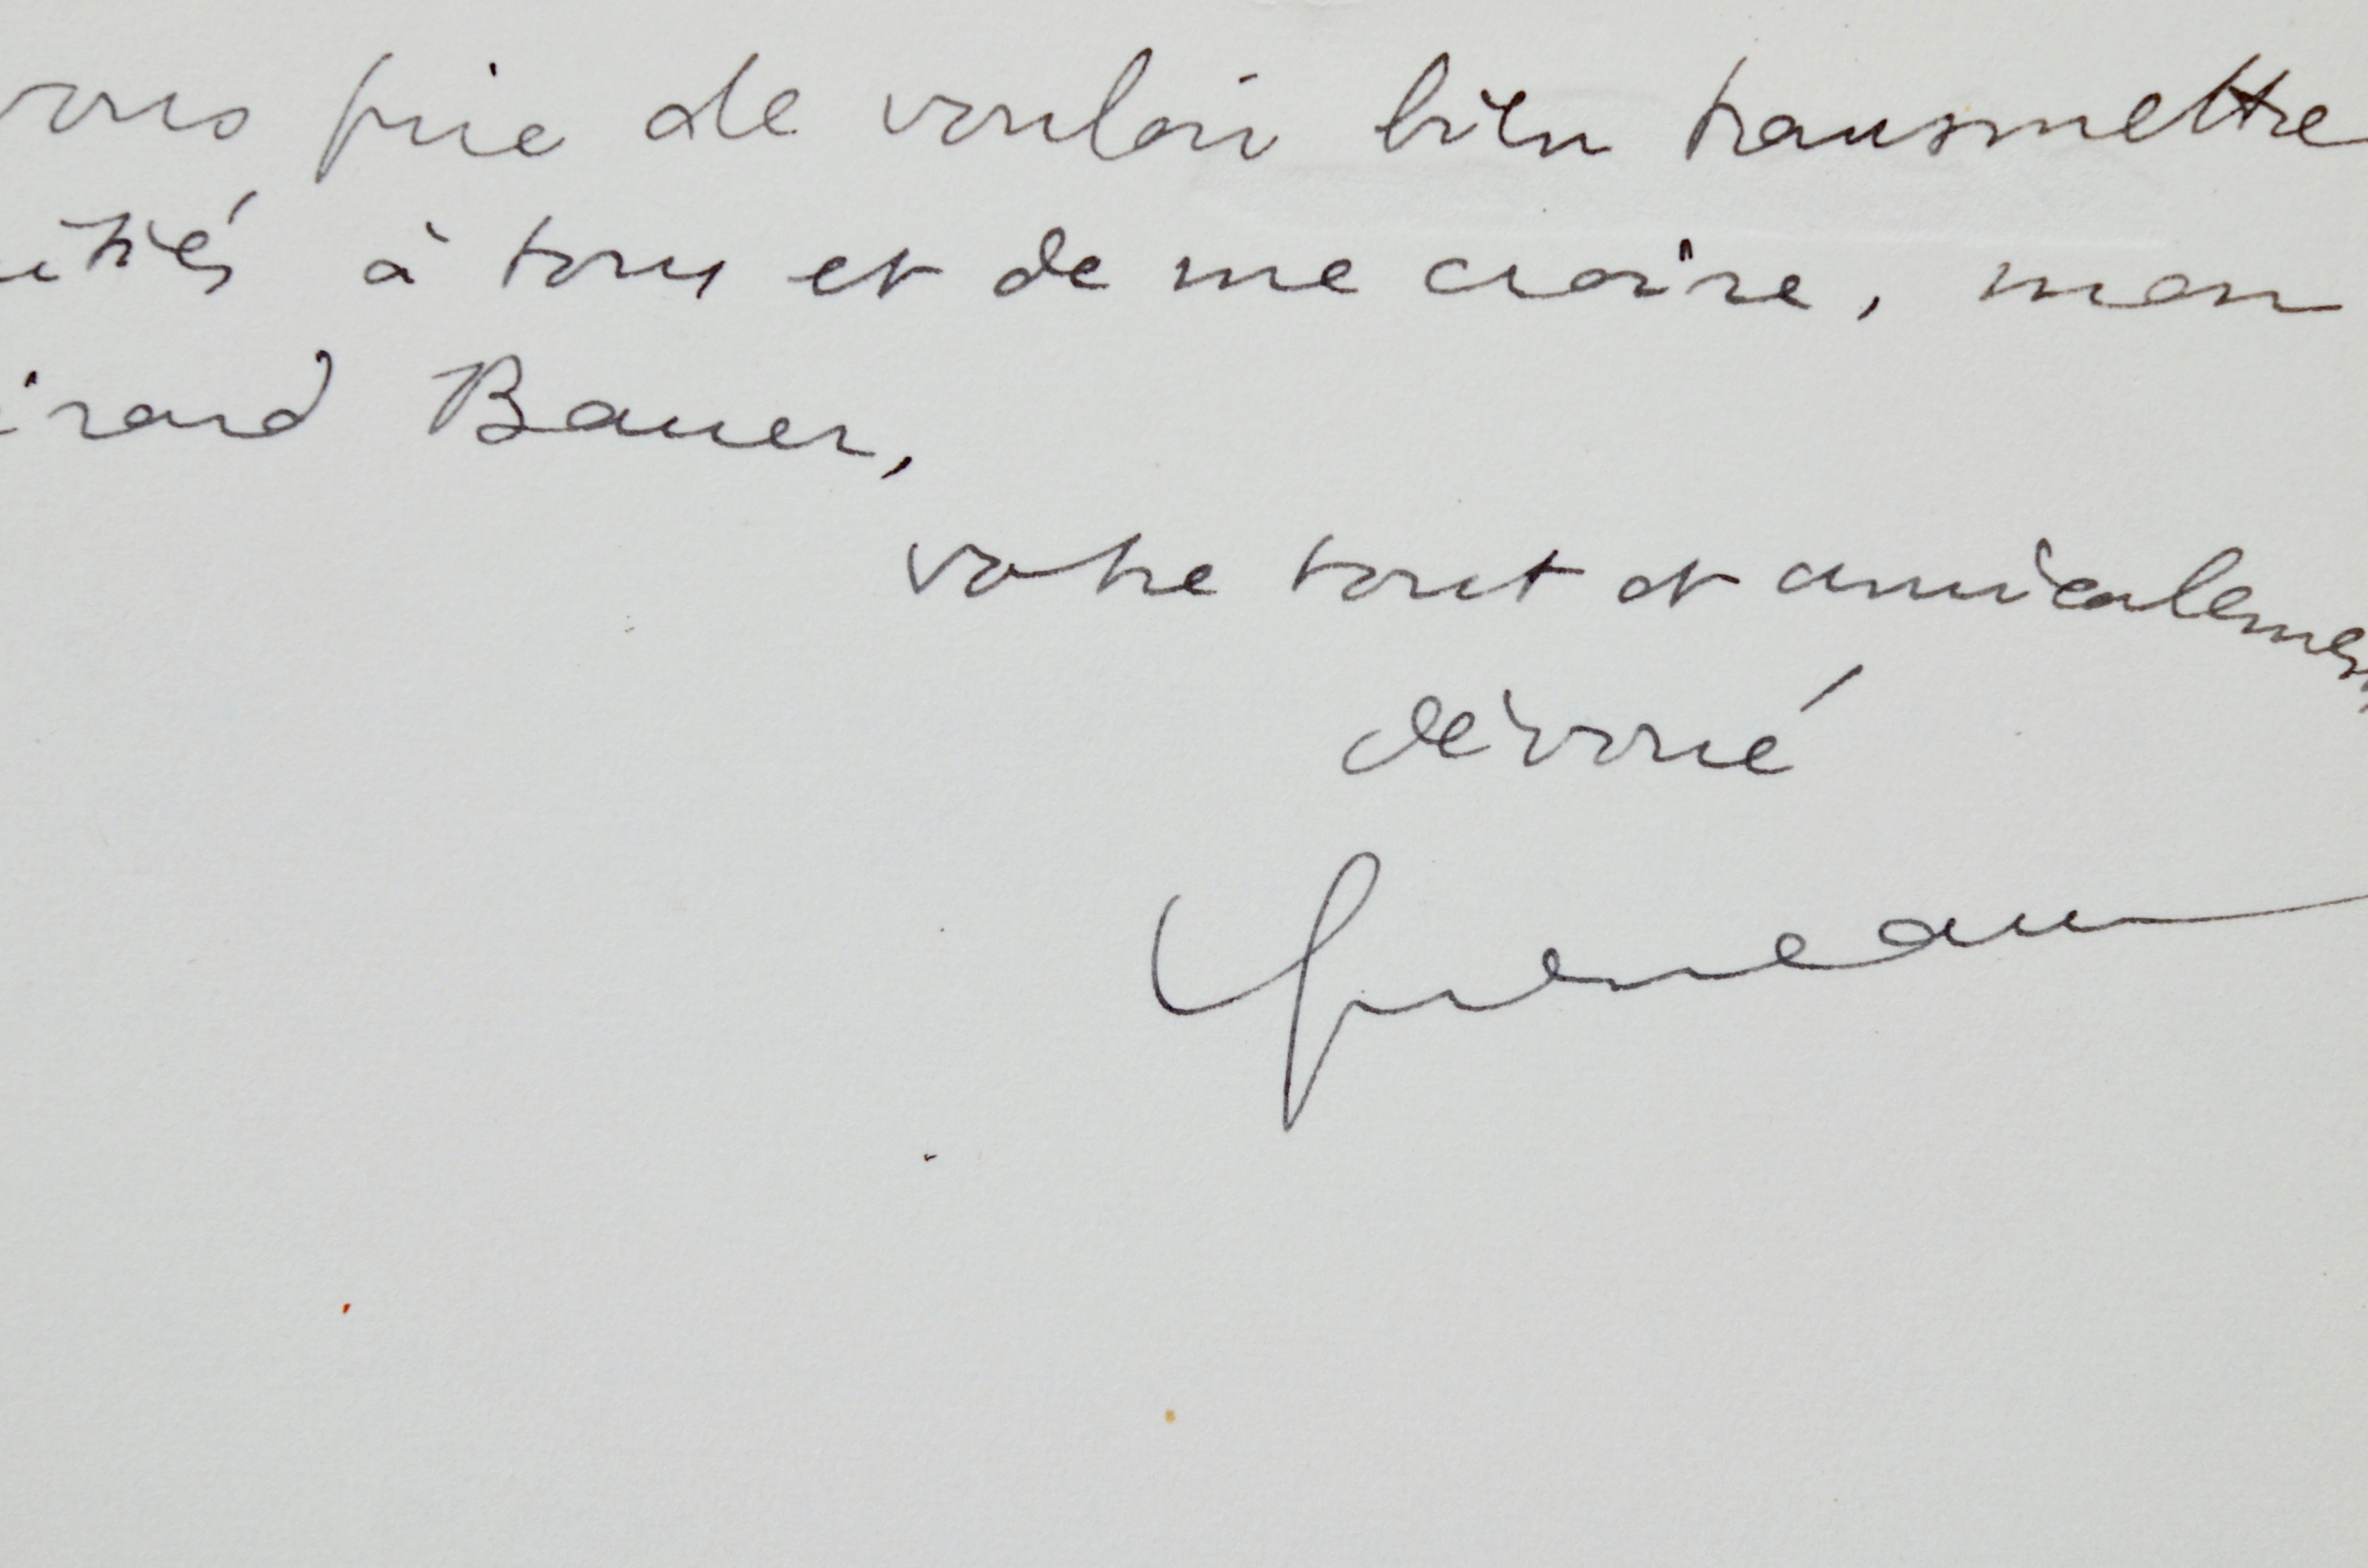 vous prie de vouloir bien transmettre
itiés à tous et de me croire, mon
érard Bauer,
votre tout et amicalemen
dévoué
Queneau